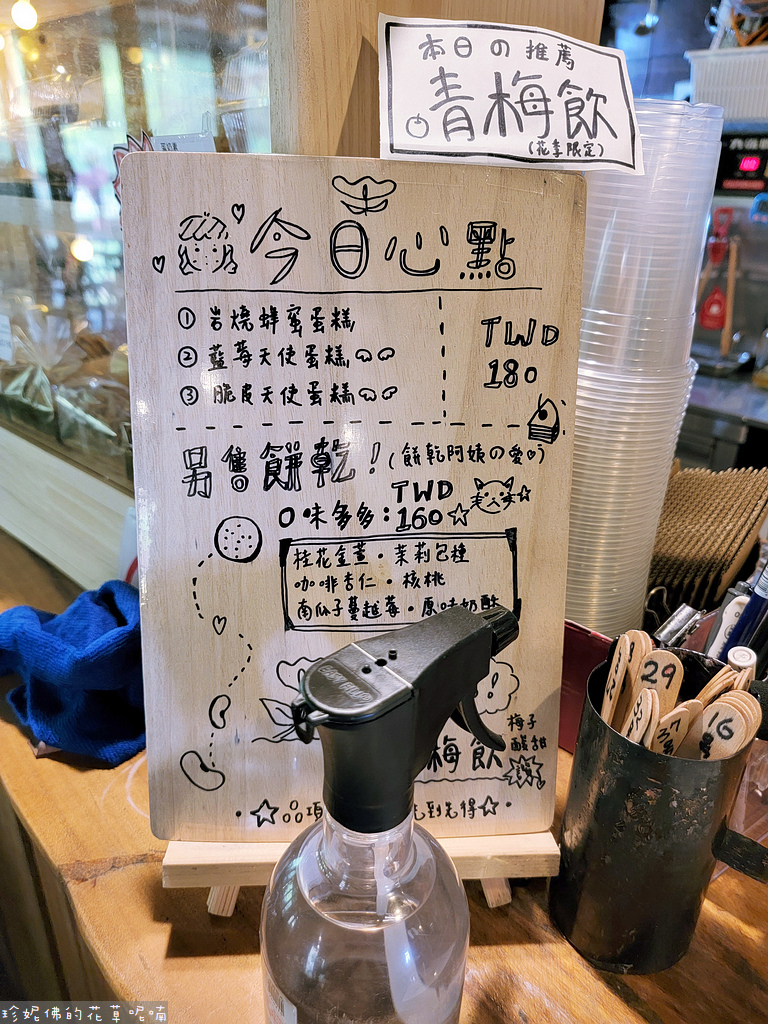 本日の推薦
青梅飲
(花季限定)
今日心點
① 岩燒蜂蜜蛋糕
② 藍莓天使蛋糕
③ 脆皮天使蛋糕
TWD
180
另售餅乾！(餅乾阿姨の愛♡)
TWD
口味多多：160
桂花金萱・茉莉包種
咖啡杏仁・核桃
南瓜子蔓越莓・原味奶酥
梅子
酸甜
讚
梅飲
先到先得
29
16
37
珍妮佛的花草呢喃